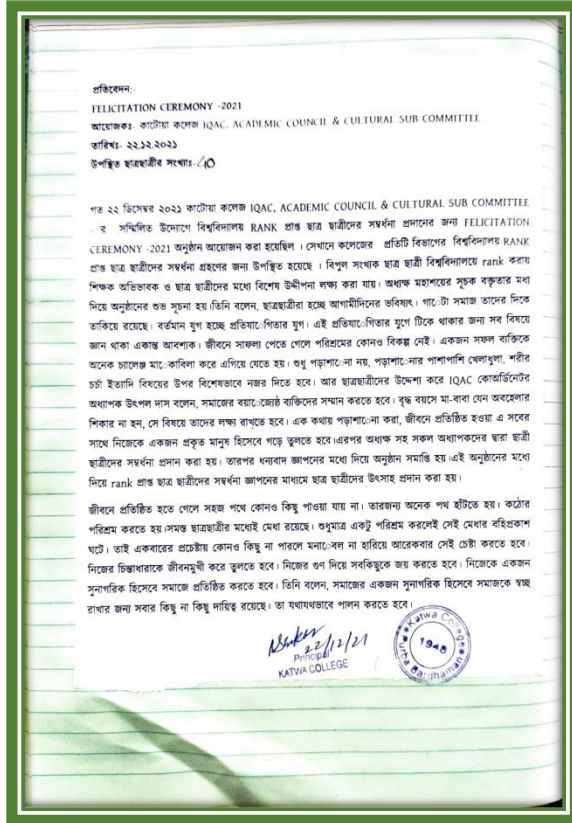 প্রতিবেদন:-
FELICITATION CEREMONY -2021
আয়োজকঃ- কাটোয়া কলেজ IQAC, ACADEMIC COUNCIL & CULTURAL SUB COMMITTEE
তারিখঃ- ২২.১২.২০২১
উপস্থিত ছাত্রছাত্রীর সংখ্যাঃ-40
গত ২২ ডিসেম্বর ২০২১ কাটোয়া কলেজ IQAC, ACADEMIC COUNCIL & CULTURAL SUB COMMITTEE
- র সম্মিলিত উদ্যোগে বিশ্ববিদ্যালয় RANK প্রাপ্ত ছাত্র ছাত্রীদের সম্বর্ধনা প্রদানের জন্য FELICITATION
CEREMONY -2021 অনুষ্ঠান আয়োজন করা হয়েছিল । সেখানে কলেজের প্রতিটি বিভাগের বিশ্ববিদ্যালয় RANK
প্রাপ্ত ছাত্র ছাত্রীদের সম্বর্ধনা গ্রহণের জন্য উপস্থিত হয়েছে । বিপুল সংখ্যক ছাত্র ছাত্রী বিশ্ববিদ্যালয়ে rank করায়
শিক্ষক অভিভাবক ও ছাত্র ছাত্রীদের মধ্যে বিশেষ উদ্দীপনা লক্ষ্য করা যায়। অধ্যক্ষ মহাশয়ের সূচক বক্তৃতার মধ্য
দিয়ে অনুষ্ঠানের শুভ সূচনা হয়।তিনি বলেন, ছাত্রছাত্রীরা হচ্ছে আগামীদিনের ভবিষ্যৎ। গাে​টা সমাজ তাদের দিকে
তাকিয়ে রয়েছে। বর্তমান যুগ হচ্ছে প্রতিযাোগিতার যুগ। এই প্রতিযাোগিতার যুগে টিকে থাকার জন্য সব বিষয়ে
জ্ঞান থাকা একান্ত আবশ্যক। জীবনে সাফল্য পেতে গেলে পরিশ্রমের কোনও বিকল্প নেই। একজন সফল ব্যক্তিকে
অনেক চ্যালেঞ্জ মাোকাবিলা করে এগিয়ে যেতে হয়। শুধু পড়াশাোনা নয়, পড়াশাোনার পাশাপাশি খেলাধুলা, শরীর
চর্চা ইত্যাদি বিষয়ের উপর বিশেষভাবে নজর দিতে হবে। আর ছাত্রছাত্রীদের উদ্দেশ্য করে IQAC কোঅর্ডিনেটর
অধ্যাপক উৎপল দাস বলেন, সমাজের বয়াোজ্যেষ্ঠ ব্যক্তিদের সম্মান করতে হবে। বৃদ্ধ বয়সে মা-বাবা যেন অবহেলার
শিকার না হন, সে বিষয়ে তাদের লক্ষ্য রাখতে হবে। এক কথায় পড়াশাোনা করা, জীবনে প্রতিষ্ঠিত হওয়া এ সবের
সাথে নিজেকে একজন প্রকৃত মানুষ হিসেবে গড়ে তুলতে হবে।এরপর অধ্যক্ষ সহ সকল অধ্যাপকদের দ্বারা ছাত্রী
ছাত্রীদের সম্বর্ধনা প্রদান করা হয়। তারপর ধন্যবাদ জ্ঞাপনের মধ্যে দিয়ে অনুষ্ঠান সমাপ্তি হয়।এই অনুষ্ঠানের মধ্যে
দিয়ে rank প্রাপ্ত ছাত্র ছাত্রীদের সম্বর্ধনা জ্ঞাপনের মাধ্যমে ছাত্র ছাত্রীদের উৎসাহ প্রদান করা হয়।
জীবনে প্রতিষ্ঠিত হতে গেলে সহজ পথে কোনও কিছু পাওয়া যায় না। তারজন্য অনেক পথ হাঁটতে হয়। কঠোর
পরিশ্রম করতে হয়।সমস্ত ছাত্রছাত্রীর মধ্যেই মেধা রয়েছে। শুধুমাত্র একটু পরিশ্রম করলেই সেই মেধার বহিপ্রকাশ
ঘটে। তাই একবারের প্রচেষ্টায় কোনও কিছু না পারলে মনাোবল না হারিয়ে আরেকবার সেই চেষ্টা করতে হবে।
নিজের চিন্তাধারাকে জীবনমুখী করে তুলতে হবে। নিজের গুণ দিয়ে সবকিছুকে জয় করতে হবে। নিজেকে একজন
সুনাগরিক হিসেবে সমাজে প্রতিষ্ঠিত করতে হবে। তিনি বলেন, সমাজের একজন সুনাগরিক হিসেবে সমাজকে স্বচ্ছ
রাখার জন্য সবার কিছু না কিছু দায়িত্ব রয়েছে। তা যথাযথভাবে পালন করতে হবে।
22/12/21
Principal
KATWA COLLEGE
Katwa College
1948
Purba Bardhaman